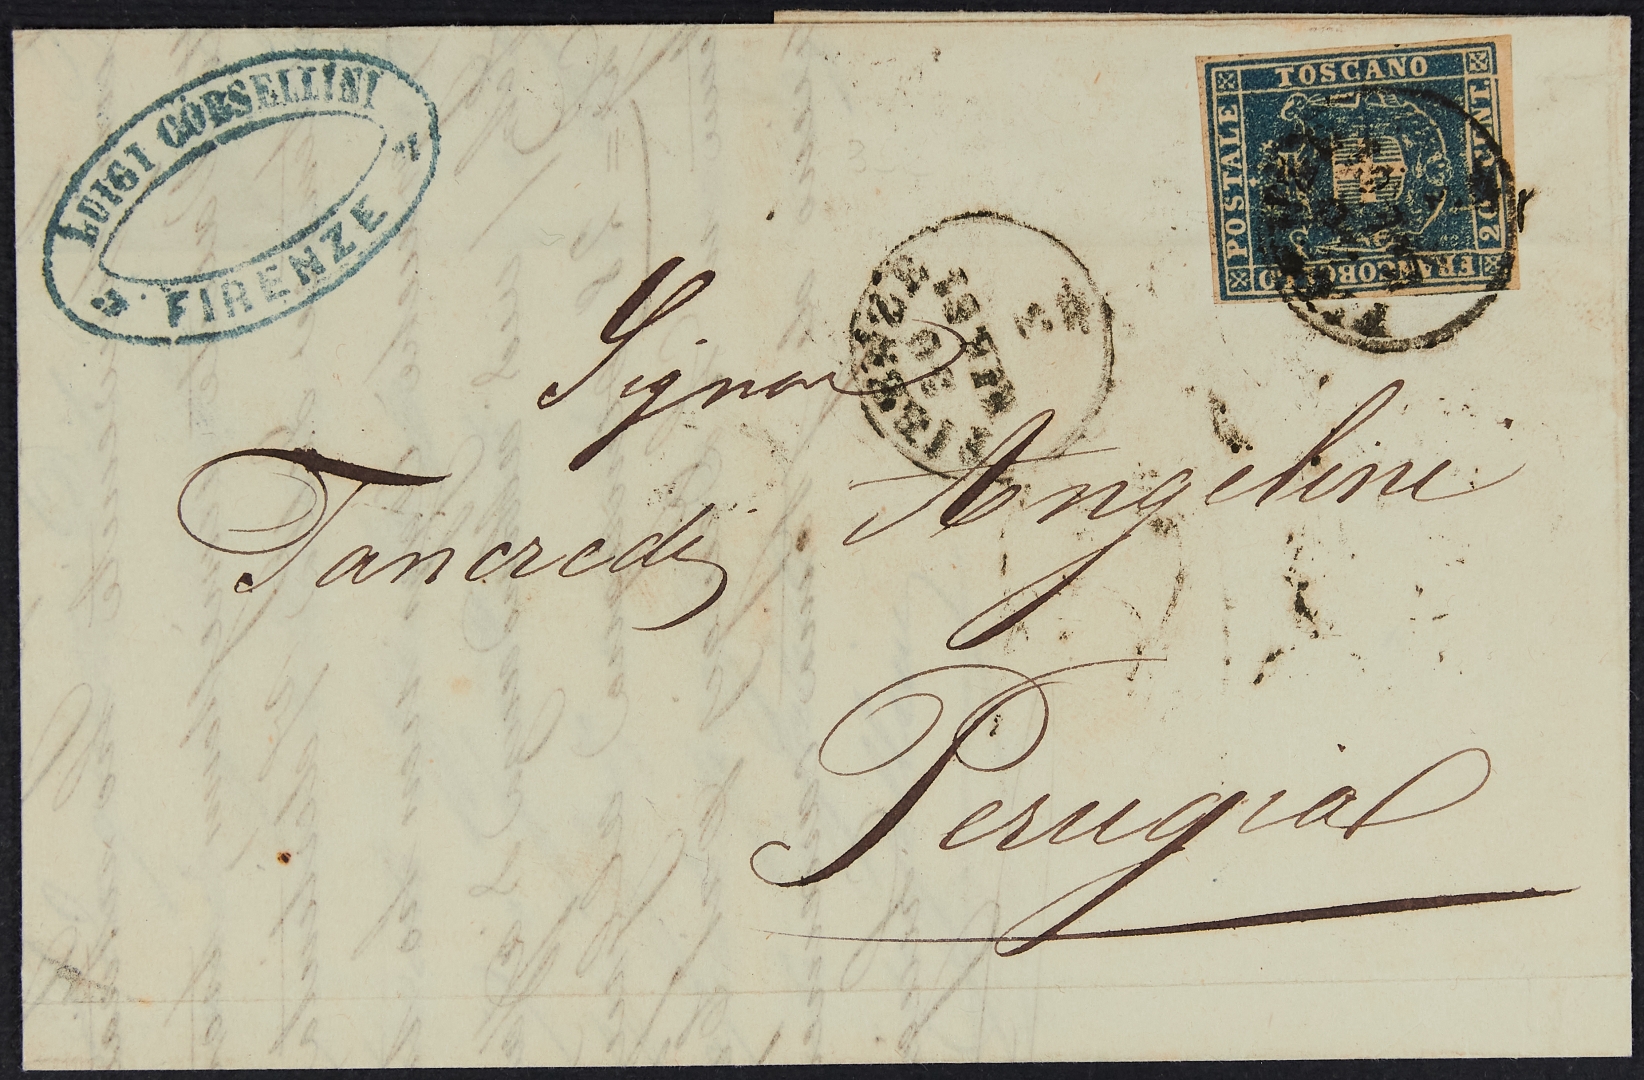 LUIGI CORSELLINI
FIRENZE
FRANCOBOLLO
POSTALE
TOSCANO
20 CENT.
FIRENZE
Signor
Tancredi Angelini
Perugia